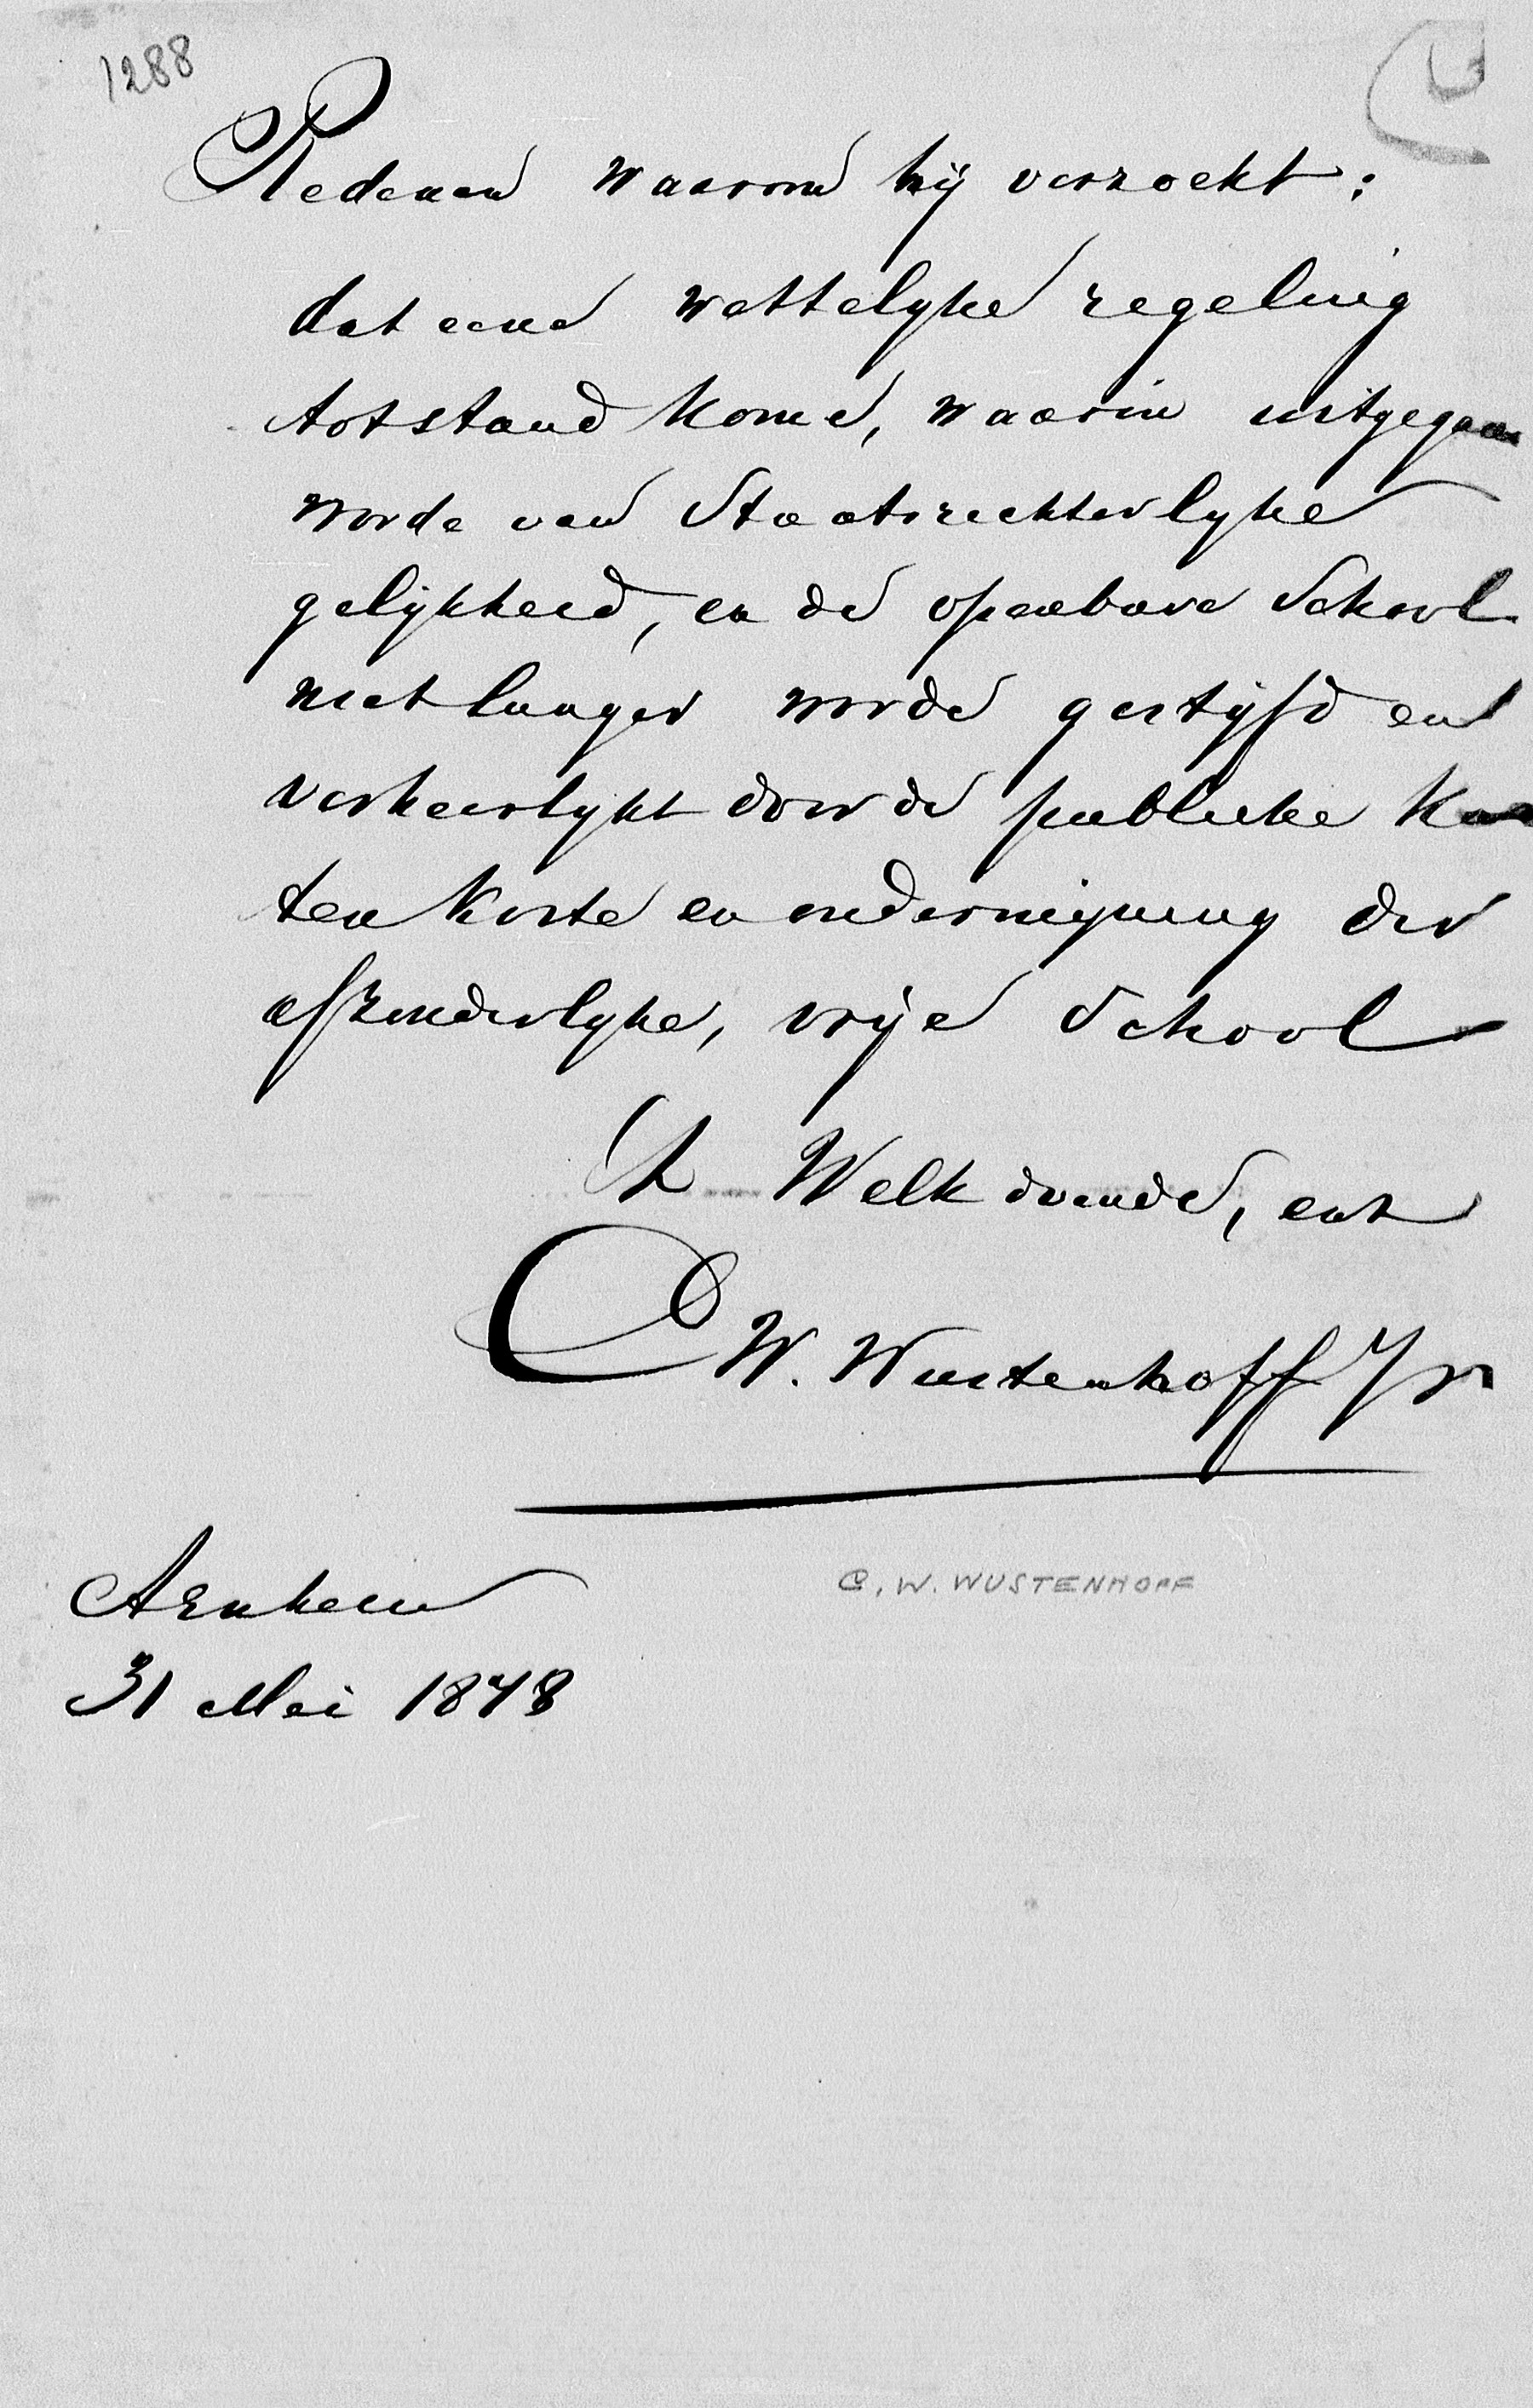 1288
Redenen waarom hij verzoekt:
dat eene wettelyke regeling
totstand kome, waarin uitgegaan
worde van Staatsrechterlyke
gelijkheid, en de openbare School
niet langer worde gestijfd en
verheerlykt door de publieke Kas
ten koste en ondermijning der
afzonderlyke, vrije School
't Welk doende, enz
C W. Wustenhoff Jr
C. W. WUSTENHOFF
Arnhem
31 Mei 1878